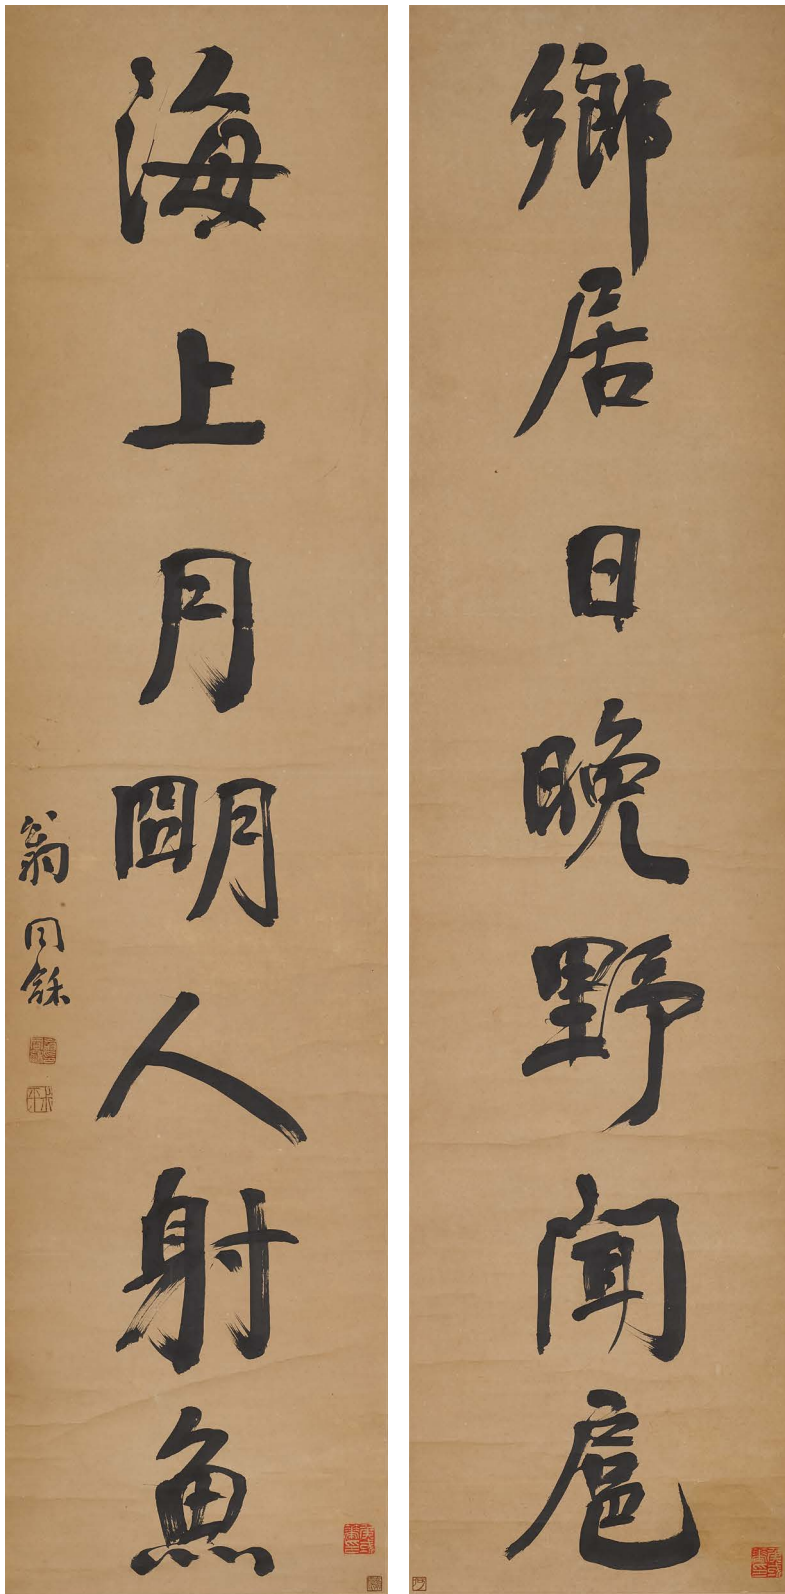 鄉居日晚野聞扈
海上月朙人射魚
翁同龢